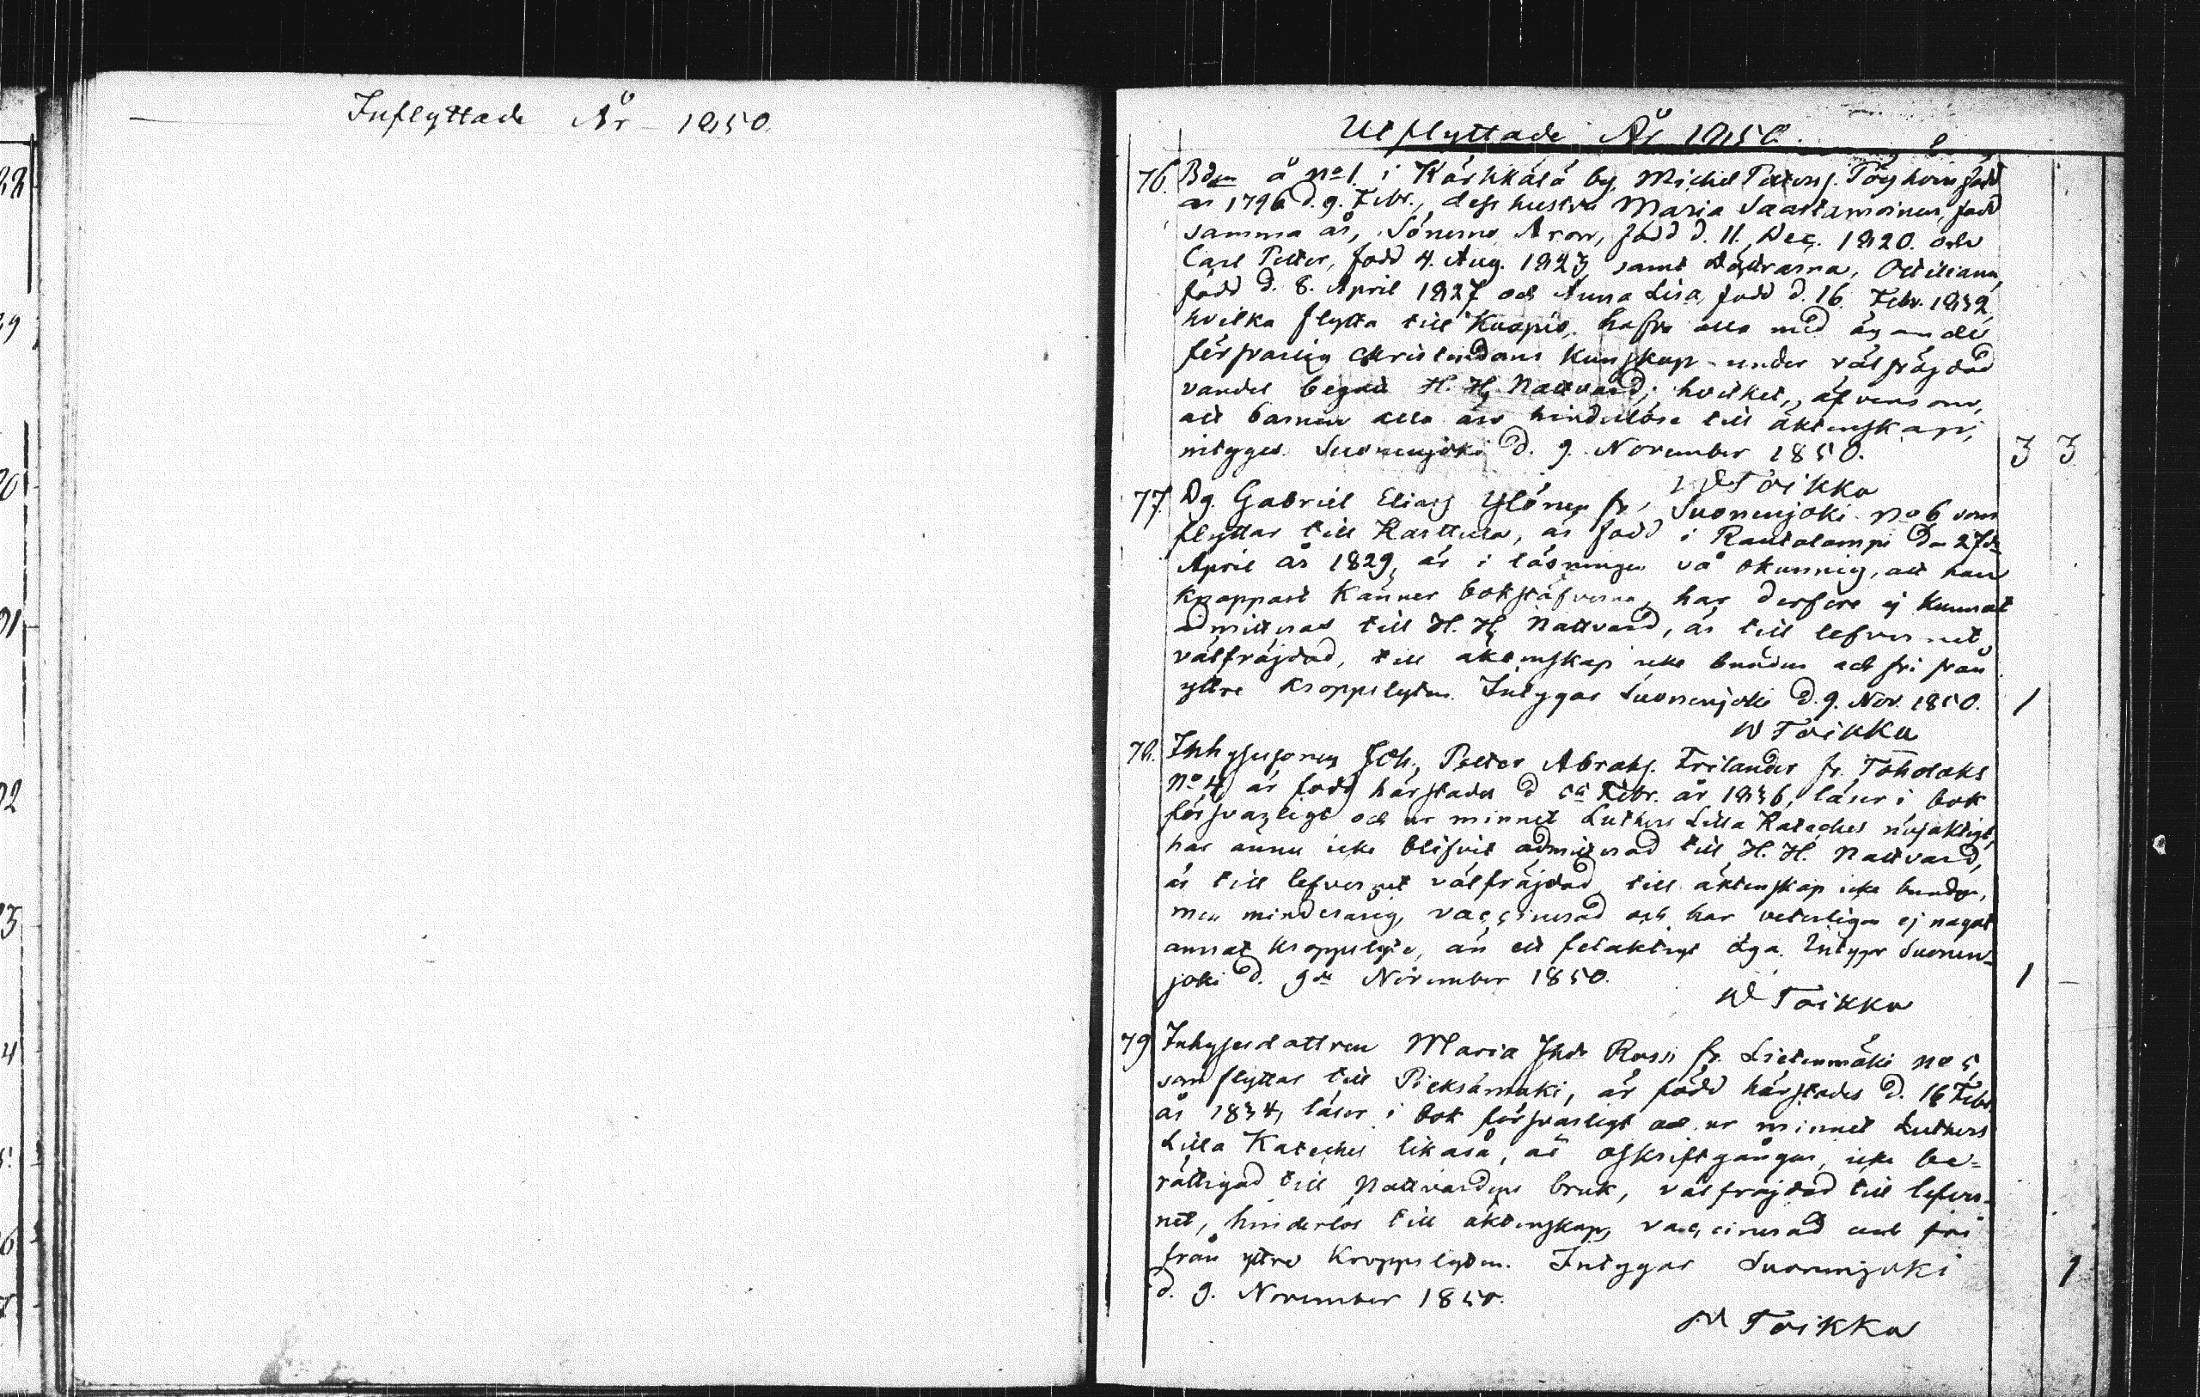 Inflyttade År 1850.
Utflyttade År 1850.
76. Bdn å No 1. i Kärkkälä by, Michel Petterss. Pöyhönen född
år 1796 d. 9. Febr., dess hustru Maria Saastamoinen, född
samma år, Sönerne Aron, född d. 11. Dec. 1820. och
Carl Petter, född 4. Aug. 1823, samt döttrarna, Ottiliana,
född d. 8. April 1827 och Anna Lisa, född d. 16 Febr. 1832,
hvilka flytta till Kuopio, hafva alla med ägande
försvarlig christendoms kunskap under välfräjdad
vandel begått H. H. Nattvard; hvilket, äfvensom,
att barnen alla äro hinderlösa till äktenskap,
intygas. Suonenjoki d. 9. November 1850. 3 3
W Toikka
77. Dg. Gabriel Eliass Ylönen fr. Suonenjoki No 6 som
flyttar till Karttula, är född i Rautalampi den 27de
April år 1829, är i läsningen så okunnig, att han
knappast känner bokstäfverna, har derföre ej kunnat
admitteras till H. H. Nattvard, är till lefvernet
välfräjdad, till äktenskap icke bunden och fri från
yttre kroppslyten. Intygas Suonenjoki d. 9. Nov. 1850. 1
W Toikka
78. Inhysesonen Joh. Petter Abrahs. Frilander fr. Toholaks
No 4, är född härstädes d Febr. år 1836, läser i bok
försvarligt och ur minnet Luthers Lilla Kateches nöjaktigt,
har ännu icke blifvit admitterad till H. H. Nattvard,
är till lefvernet välfräjdad, till äktenskap icke bunden,
men minderårig, vaccinerad och har veterligen ej något
annat kroppslyte, än ett felaktigt öga. Intygar Suonen-
joki d. 9de November 1850. 1 –
W Toikka
79 Inhysesdottren Maria Johdr Rossi fr. Lietenmäki No 5,
som flyttar till Pieksämäki, är född härstädes d. 16 Febr.
år 1834, läser i bok försvarligt och ur minnet Luthers
Lilla Kateches likaså, är oskriftgången, icke be-
rättigad till Nattvardens bruk, välfräjdad till lefver-
net, hinderlös till äktenskap, vaccinerad och fri
från yttre kroppslyten. Intygar Suonenjoki
d. 9. November 1850. 1
W Toikka